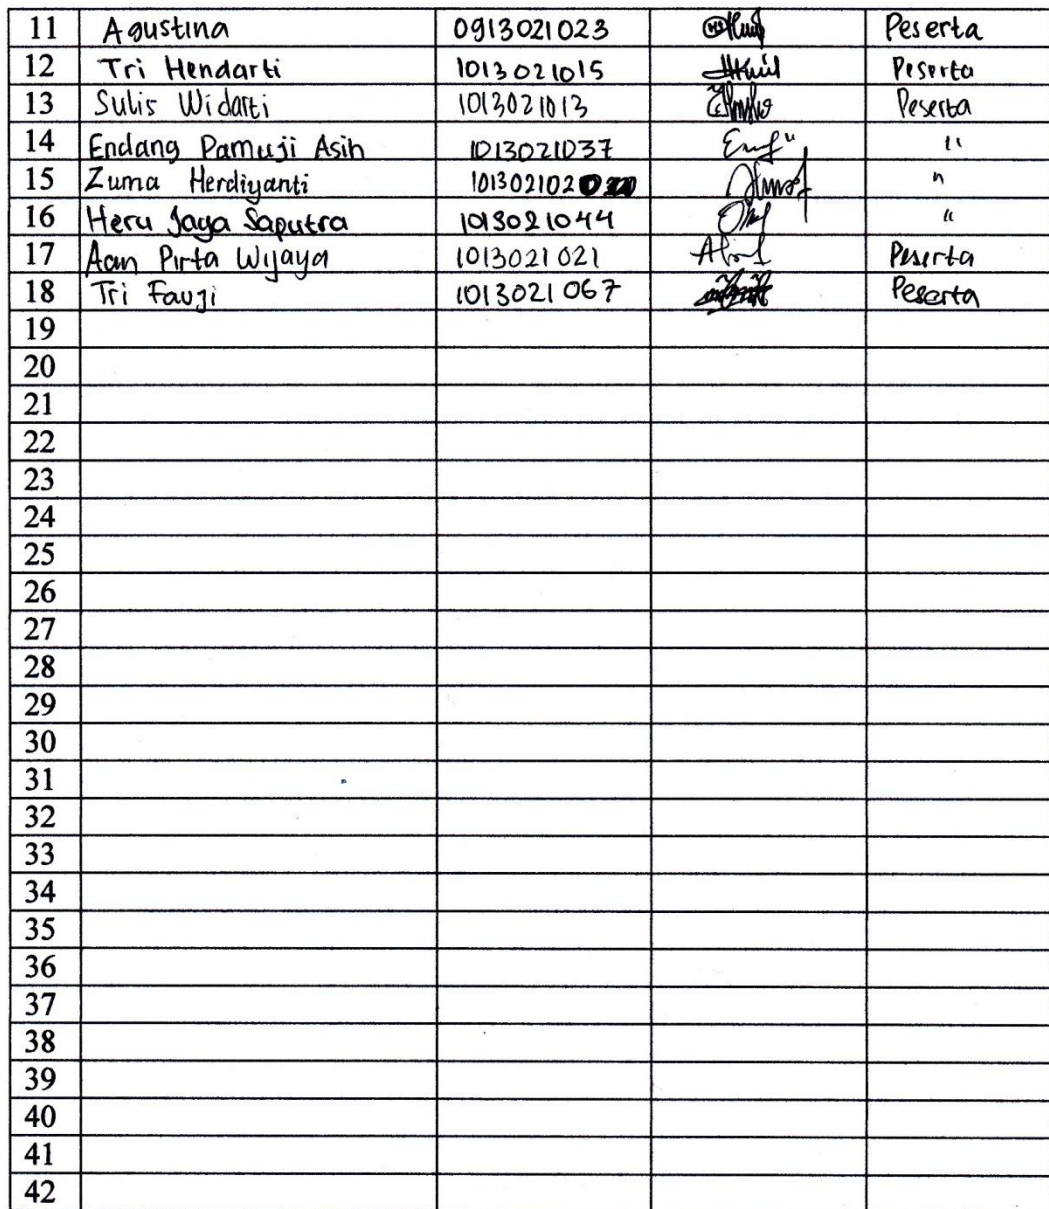 11 Agustina 0913021023 Peserta
12 Tri Hendarti 1013021015 Peserta
13 Sulis Widarti 1013021013 Peserta
14 Endang Pamuji Asih 1013021037 "
15 Zuma Herdiyanti 101302102 "
16 Heru Jaya Saputra 1013021044 "
17 Aan Pirta Wijaya 1013021021 Peserta
18 Tri Fauji 1013021067 Peserta
19
20
21
22
23
24
25
26
27
28
29
30
31
32
33
34
35
36
37
38
39
40
41
42